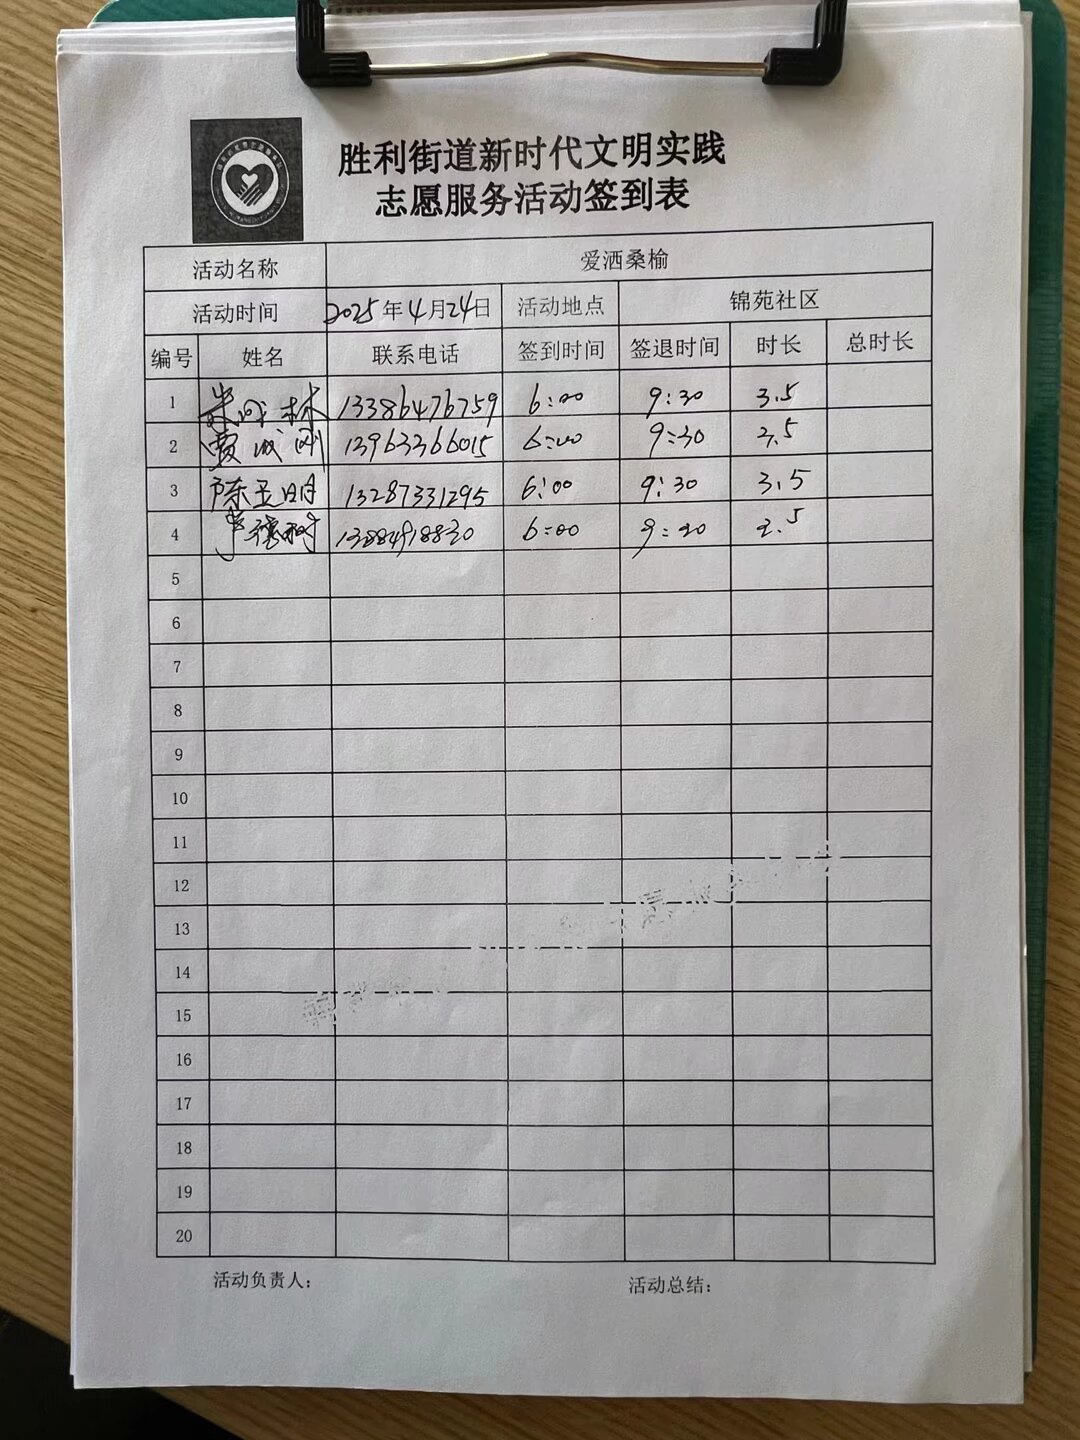 胜利街道新时代文明实践
志愿服务活动签到表
活动名称 爱洒桑榆
活动时间 2025年4月24日 活动地点 锦苑社区
编号 姓名 联系电话 签到时间 签退时间 时长 总时长
1 林 13386476759 6:00 9:30 3.5
2 费成刚 13963366015 6:00 9:30 3.5
3 陈玉明 13287331295 6:00 9:30 3.5
4 6:00 9:30 3.5
5
6
7
8
9
10
11
12
13
14
15
16
17
18
19
20
活动负责人： 活动总结：